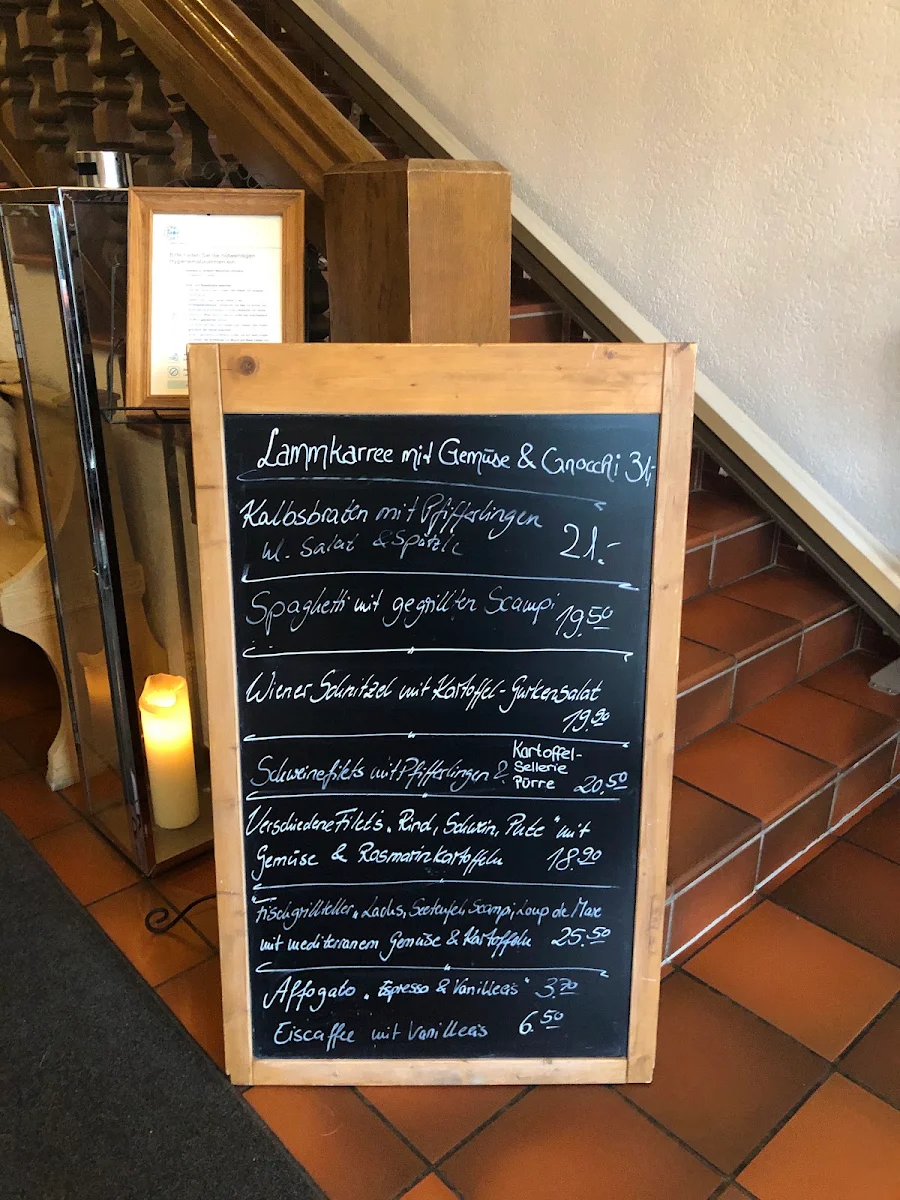 Bitte halten Sie die notwendigen
Hygienemaßnahmen ein
Lammkarree mit Gemüse & Gnocchi 31,-
Kalbsbraten mit Pfifferlingen
kl. Salat & Spätzle 21.-
Spaghetti mit gegrillten Scampi 19.50
Wiener Schnitzel mit Kartoffel-Gurkensalat
19.90
Schweinefilets mit Pfifferlingen & Kartoffel-
Sellerie
Pürre 20.50
Verschiedene Filet's "Rind, Schwin, Pute" mit
Gemüse & Rosmarinkartoffeln 18.90
Fischgrillteller "Lachs, Seeteufel, Scampi, Loup de Mare
mit mediterranem Gemüse & Kartoffeln 25.50
Affogato "Espresso & Vanilleeis" 3.70
Eiscaffee mit Vanilleeis 6.50